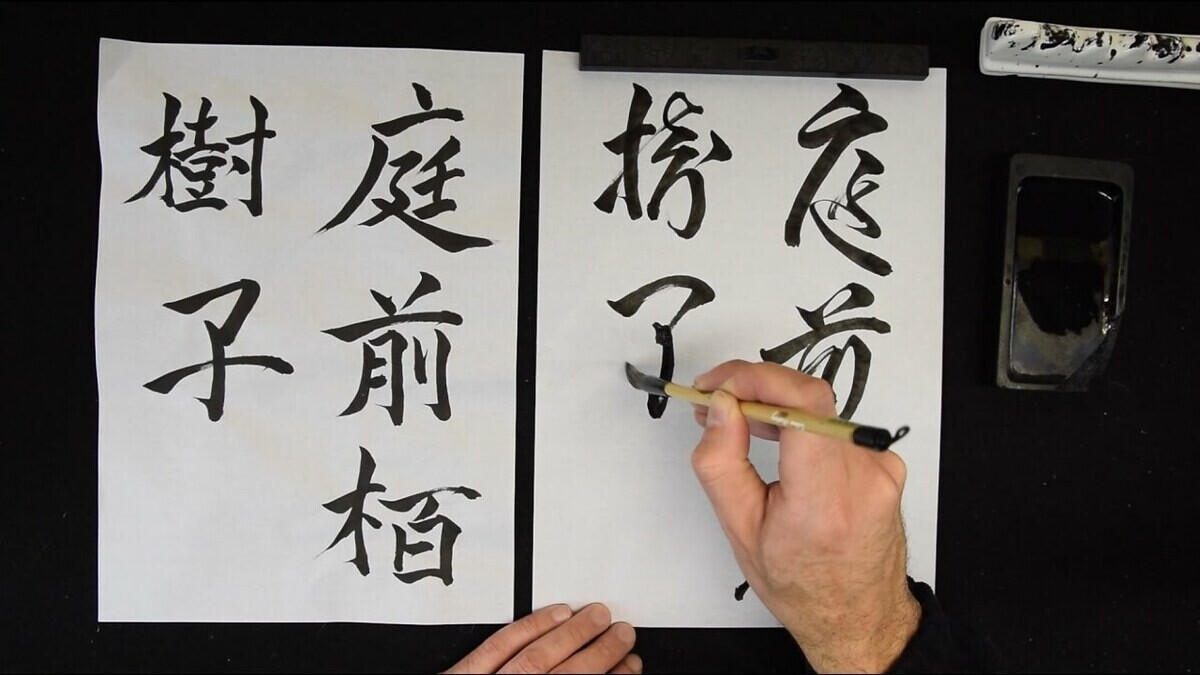 庭前栢
樹子
庭前
樹子